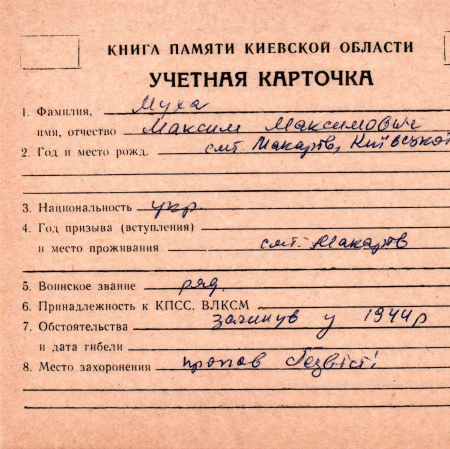 КНИГА ПАМЯТИ КИЕВСКОЙ ОБЛАСТИ
УЧЕТНАЯ КАРТОЧКА
1. Фамилия, Муха
имя, отчество Максим Максимович
2. Год и место рожд. смт. Макарів, Київської
3. Национальность укр.
4. Год призыва (вступления)
и место проживания смт. Макарів
5. Воинское звание ряд.
6. Принадлежность к КПСС, ВЛКСМ
7. Обстоятельства загинув у 1944 р
и дата гибели
8. Место захоронения пропав безвісті